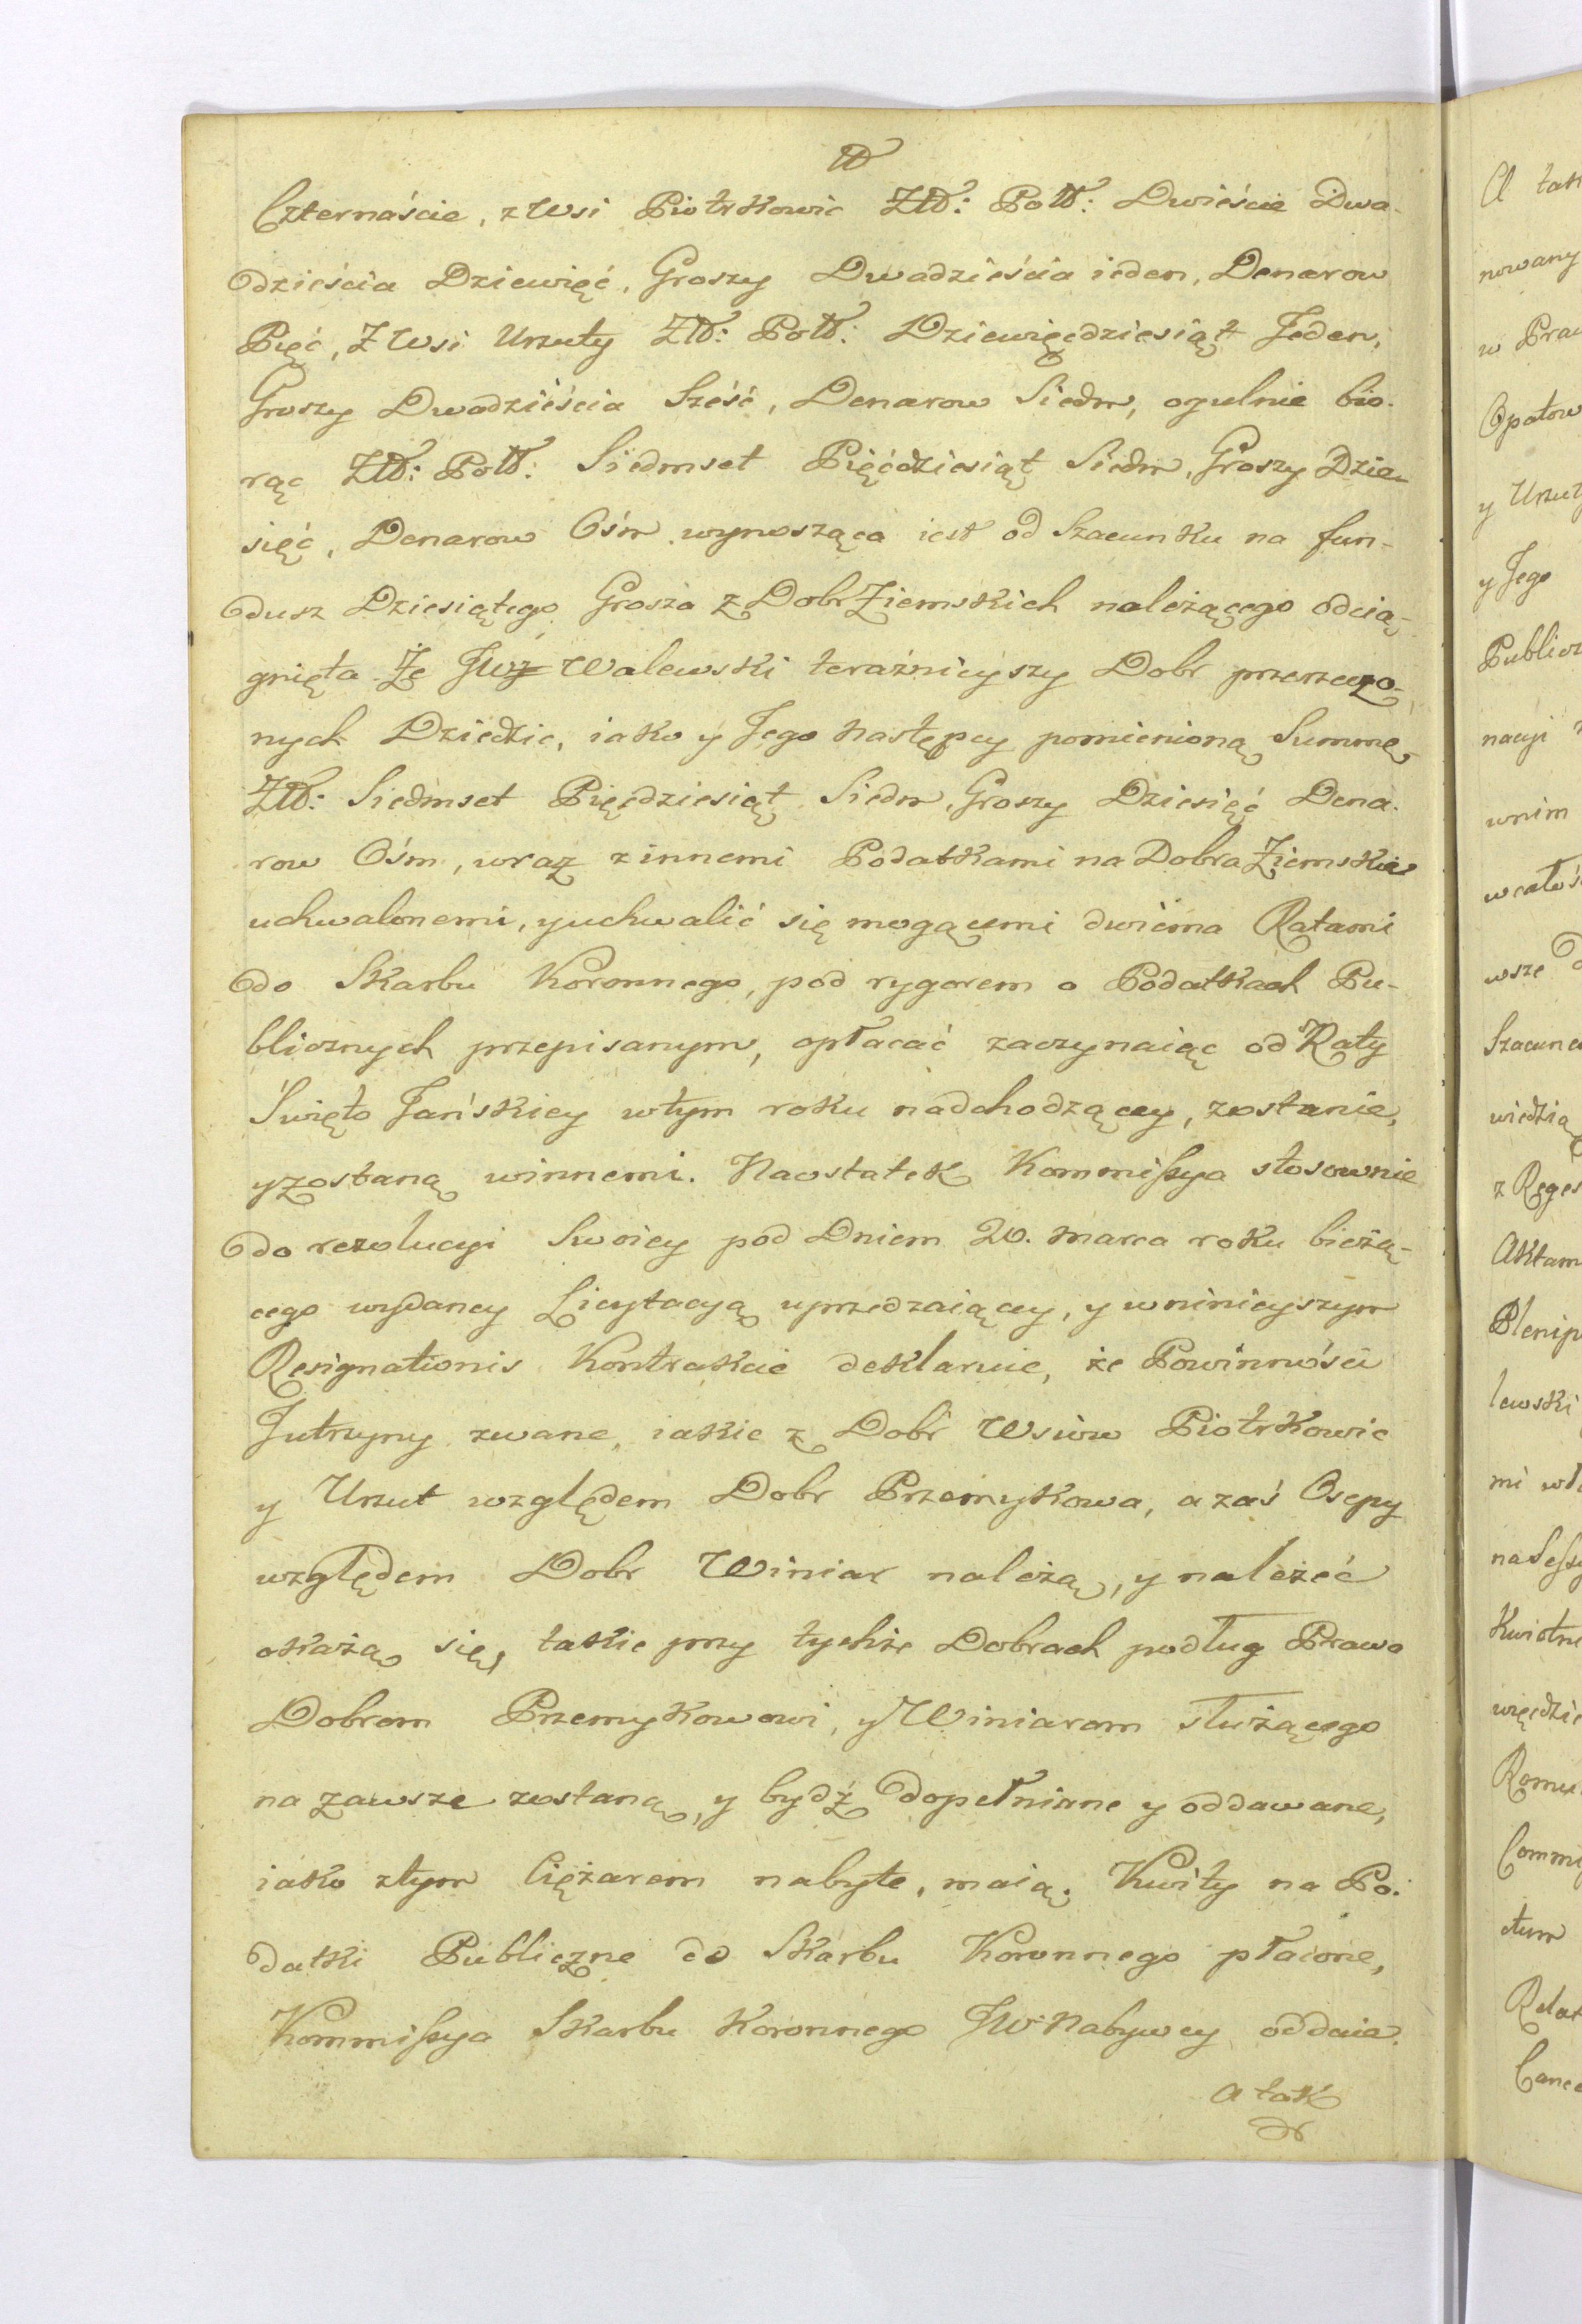 Czternaście, z Wsi Piotrkowic Złł: Poll: Dwieście Dwa-
dzieścia Dziewięć, Groszy Dwadzieścia ieden, Denarow
Pięć, Z Wsi Urzuty Złł: Poll: Dziewięćdziesiąt Jeden,
Groszy Dwadzieścia Sześć, Denarow Siedm, ogulnie bio-
rąc Złł: Poll: Siedmset Pięćdziesiąt Siedm, Groszy Dzie-
sięć, Denarow Ośm wynosząca iest od Szacunku na fun-
dusz Dziesiątego Grosza z Dobr Ziemskich należącego odcią-
gnięta. Że JWJ Walewski teraźnieyszy Dobr przerzeczo-
nych Dziedzic, iako y Jego Następcy pomienioną Summę
Złł: Siedmset Pięćdziesiąt Siedm, Groszy Dziesięć Dena-
row Ośm, wraz z innemi Podatkami na Dobra Ziemskie
uchwalonemi, y uchwalić się mogącemi dwiema Ratami
do Skarbu Koronnego, pod rygorem o Podatkach Pu-
blicznych przepisanym, opłacać zaczynaiąc od Raty
Święto Jańskiey w tym roku nadchodzącey, zostanie,
y zostaną winnemi. Naostatek Kommissya stosownie
do rezolucyi Swoiey pod Dniem 20. Marca roku bieżą-
cego wydaney Licytacyą uprzedzaiącey, y w ninieyszym
Resignationis Kontrakcie deklaruie, że Powinności
Jutrzyny zwane, iakie z Dobr Wsiow Piotrkowic
y Urzut względem Dobr Przemykowa, a zaś Osepy
względem Dobr Winiar należą, y należeć
okażą się, takie przy tychże Dobrach podług Prawa
Dobrom Przemykowowi, y Winiarom służącego
na zawsze zostaną, y bydź dopełniane y oddawane,
iako z tym Ciężarem nabyte, maią. Kwity na Po-
datki Publiczne do Skarbu Koronnego płacone,
Kommissya Skarbu Koronnego JW Nabywcy oddaie.
A tak
A tak
nowany
w Praw
Opatow
y Urzut
y Jego
Publicz
nacyi
wnim
w całoś
wsze
Szacun
wiedzią
z Reges
Aktam
Plenip
lewski
mi wła
na Sessy
Kwietn
więdzie
Romu
Commi
ctum
Relat
Cance